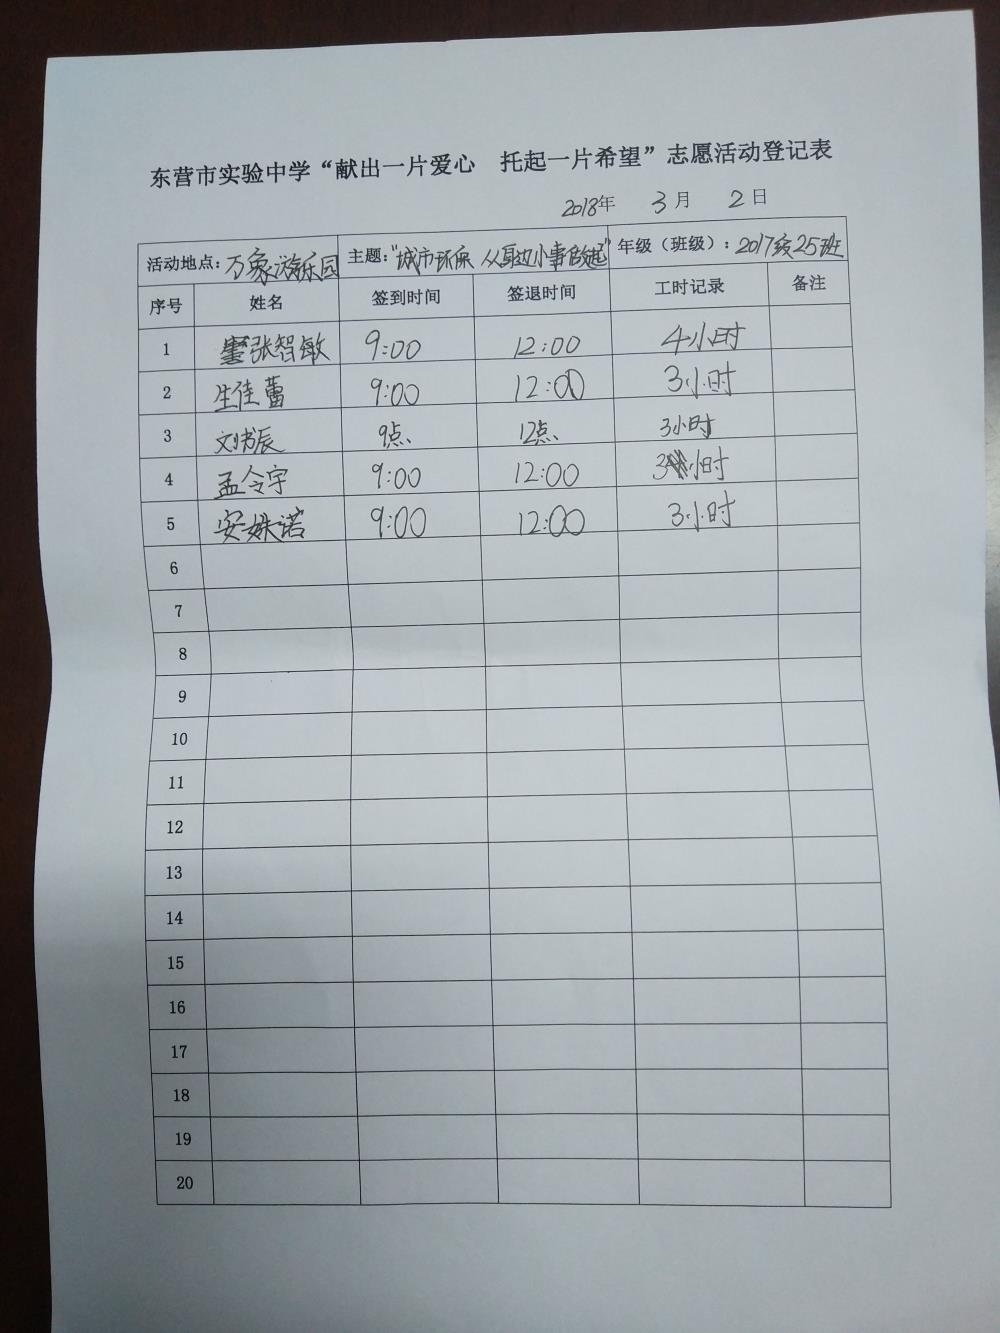 东营市实验中学“献出一片爱心 托起一片希望”志愿活动登记表
2018年 3月 2日
活动地点：万象游乐园 主题："城市环保 从身边小事做起" 年级（班级）：2017级25班
序号 姓名 签到时间 签退时间 工时记录 备注
1 张智敏 9:00 12:00 4小时
2 生佳蕾 9:00 12:00 3小时
3 刘书辰 9点 12点 3小时
4 孟令宇 9:00 12:00 3小时
5 安姝诺 9:00 12:00 3小时
6
7
8
9
10
11
12
13
14
15
16
17
18
19
20